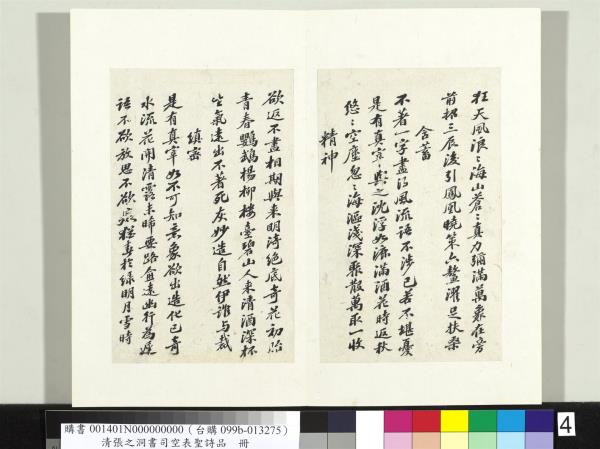 狂天風浪〻海山蒼〻真力彌滿萬象在旁
前招三辰後引鳳凰曉策六鼇濯足扶桑
含蓄
不著一字盡得風流語不涉己若不堪憂
是有真宰與之沈浮如淥滿酒花時返秋
悠〻空塵忽〻海漚淺深聚散萬取一收
精神
欲返不盡相期與來明漪絕底奇花初胎
青春鸚鵡楊柳樓臺碧山人來清酒深杯
生氣遠出不著死灰妙造自然伊誰与裁
縝密
是有真宰如不可知意象欲出造化已奇
水流花開清露未晞要路愈遠幽行為遲
語不欲放思不欲癡猶春於綠明月雪時
購書 001401N000000000 (台購 099b-013275)
清張之洞書司空表聖詩品 冊
4